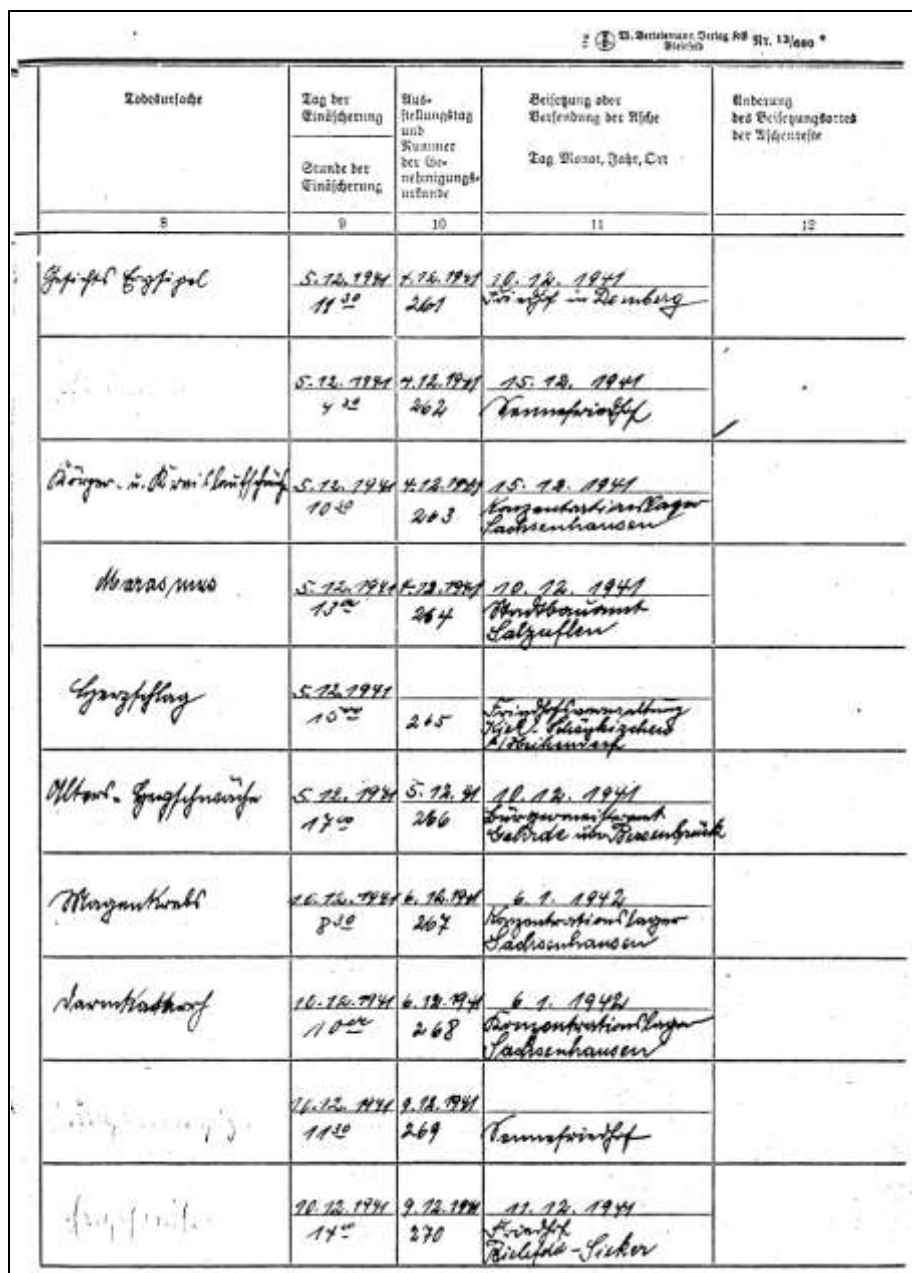 W. Bertelsmann Verlag KG Bielefeld Nr. 13/660
Todesursache
Tag der Einäscherung
Stunde der Einäscherung
Ausstellungstag und Nummer der Genehmigungsurkunde
Beisetzung oder Versendung der Asche
Tag, Monat, Jahr, Ort
Änderung des Beisetzungsortes der Aschenreste
8 9 10 11 12
Gesichts 5.12.1941 4.12.1941 10.12.1941
11 30 261 Friedhof in Dornberg
5.12.1941 4.12.1941 15.12.1941
262 Sennefriedhof
Körper- u. Kreislaufschwäche 5.12.1941 4.12.1941 15.12.1941
10 263 Konzentrationslager
Sachsenhausen
Marasmus 5.12.1941 4.12.1941 10.12.1941
13 264 Stadtbauamt
Salzuflen
Herzschlag 5.12.1941
15 00 265 Friedhofsverwaltung
Kiel-
Alters-Herzschwäche 5.12.1941 5.12.41 10.12.1941
17 00 266 Bürgermeisteramt
über Bersenbrück
Magenkrebs 10.12.1941 6.12.1941 6.1.1942
8 30 267 Konzentrationslager
Sachsenhausen
Darmkatarrh 10.12.1941 6.12.1941 6.1.1942
10 268 Konzentrationslager
Sachsenhausen
10.12.1941 9.12.1941
11 30 269 Sennefriedhof
10.12.1941 9.12.1941 11.12.1941
14 00 270 Friedhof
Bielefeld-Sieker